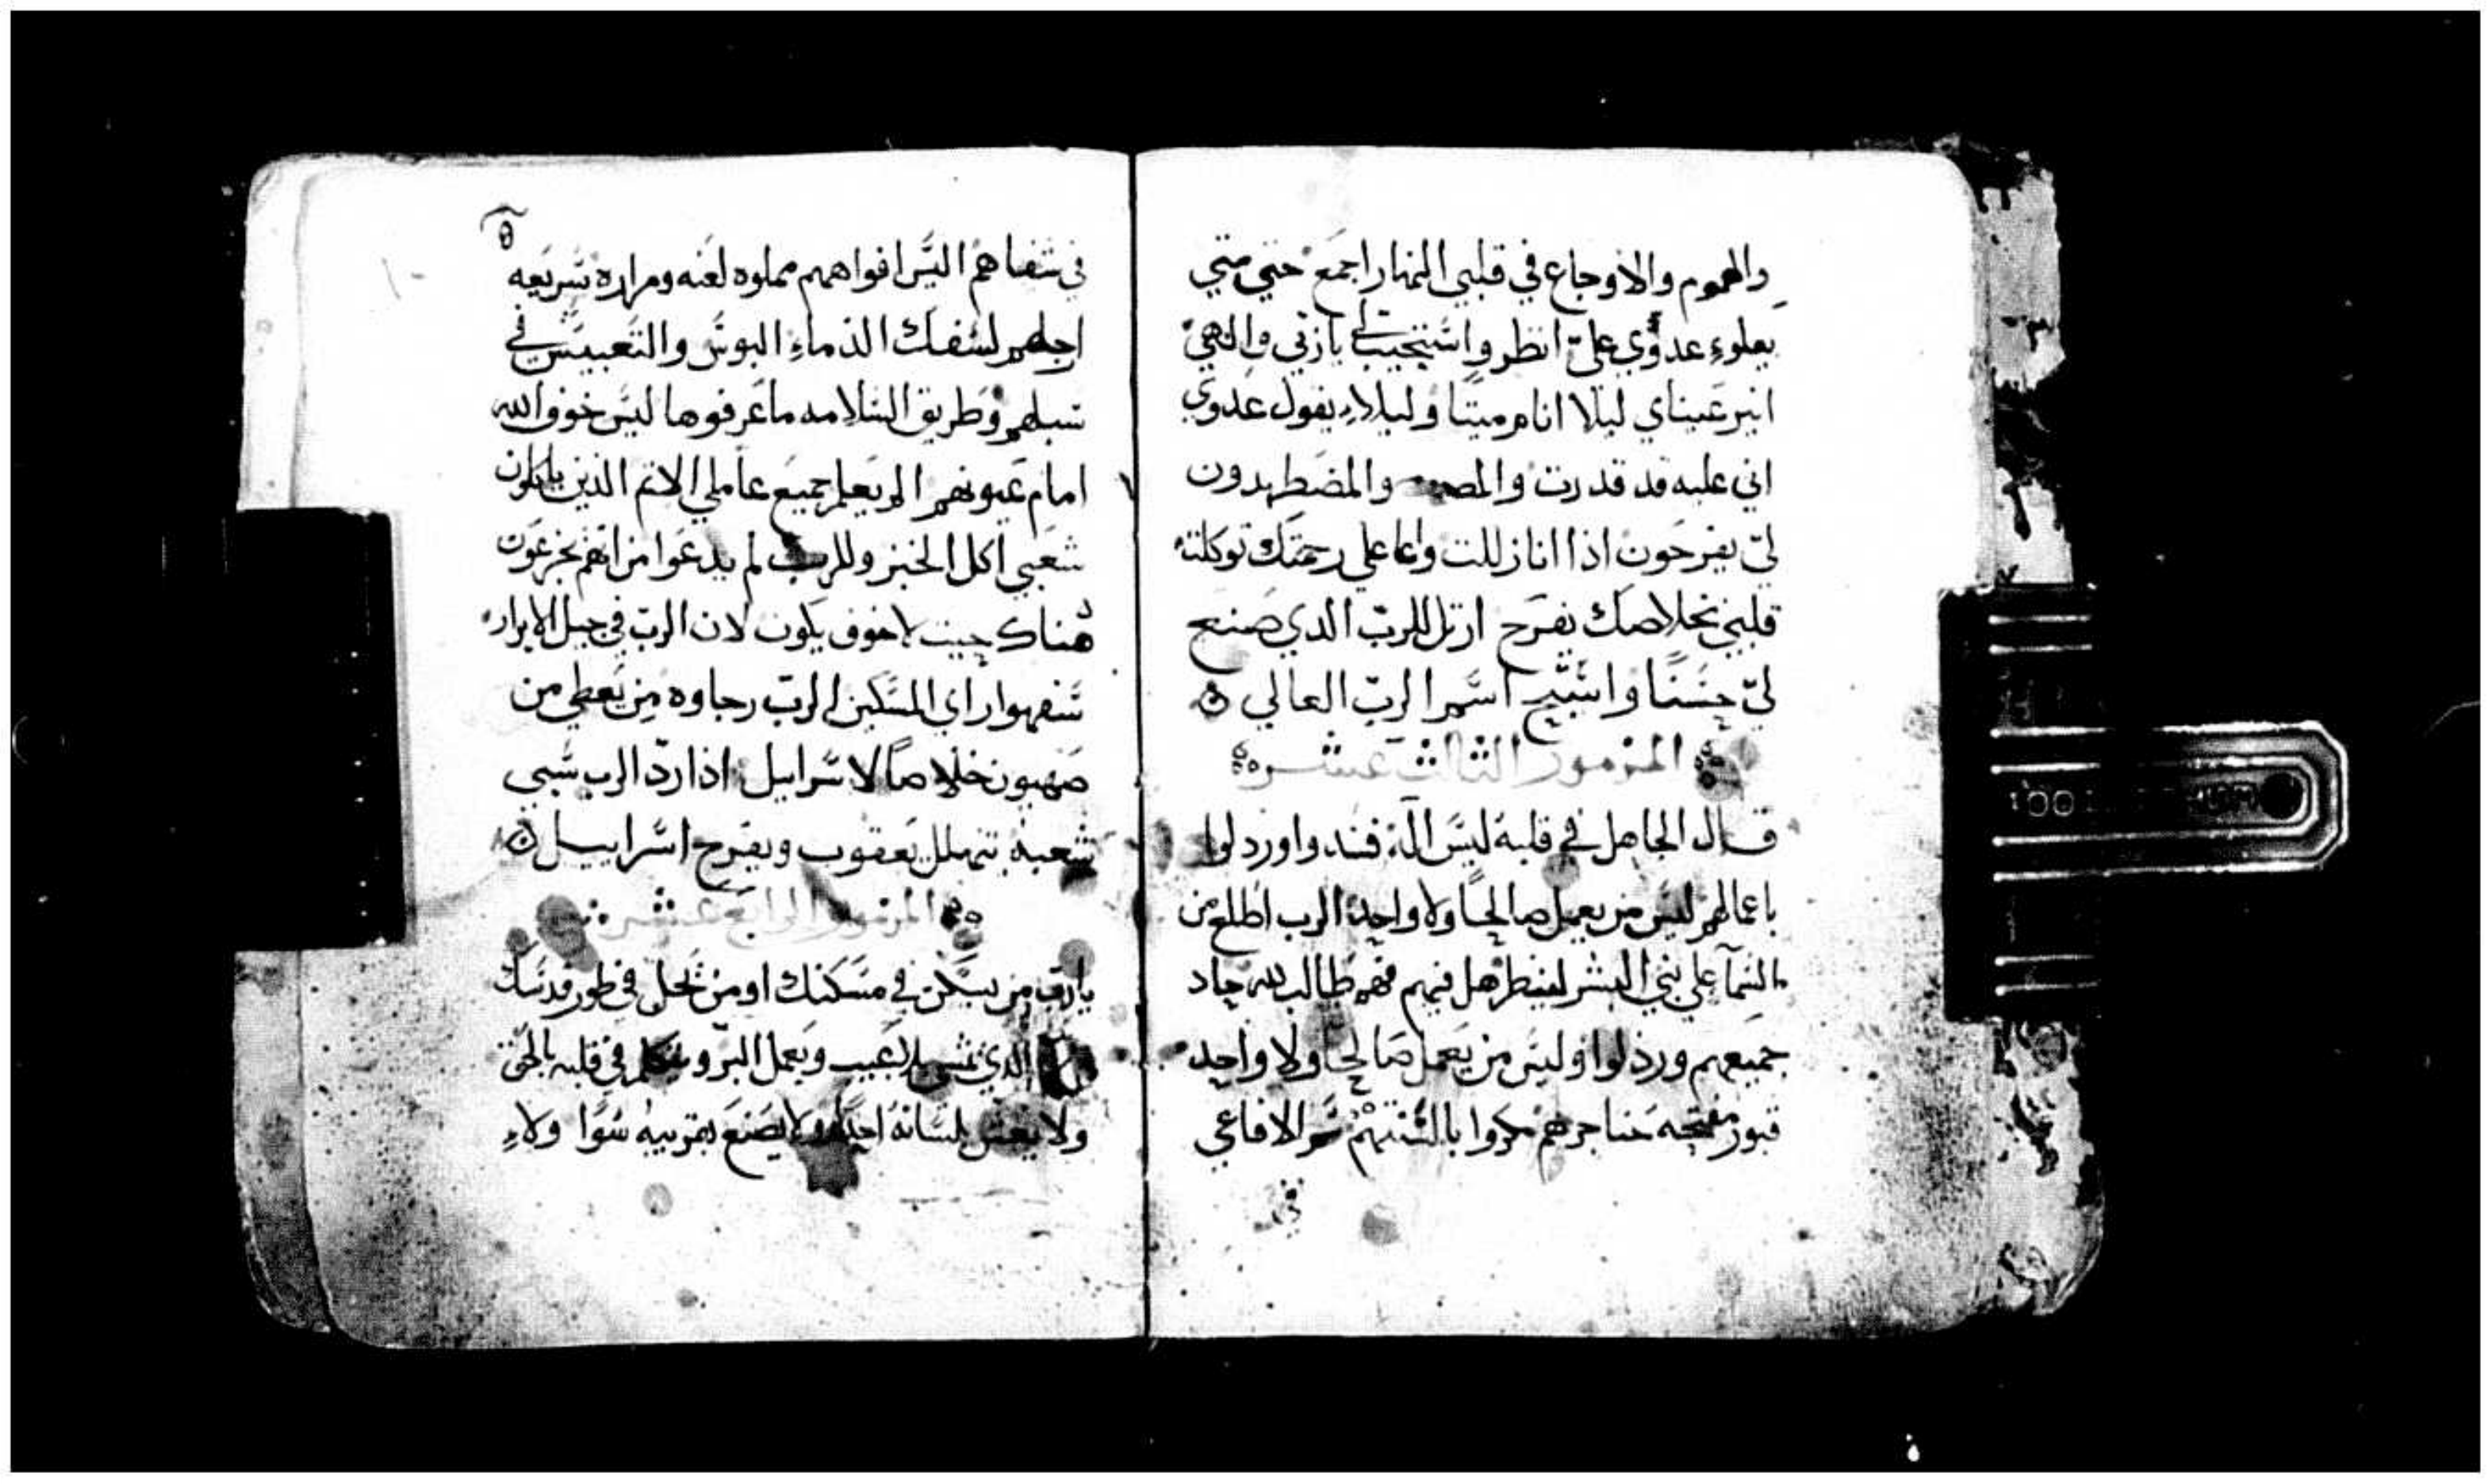 والهموم والاوجاع في قلبي النهار اجمع حتي متي
يعلوء عدوي عليّ انظر واستجيب لي ياربي والهي
انير عيناي ليلا انام ميتا وليلاء يقول عدوي
اني عليه قد قدرت والمضطهدون
ليّ يفرحون اذا انا زللت وانا علي رحمتك توكلت
قلبي بخلاصك يفرح ارتل للربّ الدي صنع
ليّ حسنًا واسبح اسم الربّ العالي
المزمور الثالث عشر
قال الجاهل في قلبه ليس اله فسدوا ورذلوا
باعمالهم ليس من يعمل صالحًا ولا واحد الرب اطلع من
السمآ علي بني البشر لينظر هل فيهم فهم طالب لله حاد
جميعهم ورذلوا وليس من يعمل صالحا ولا واحد
قبور مفتحه حناجرهم مكروا بالسنتهم سم الافاعي
في
٥
في شفاههم اليس افواههم مملوه لعنه ومراره سريعه
اجلهم لسفك الدماء البوس والتعبيس في
سبلهم وطريق السلامه ما عرفوها ليس خوف الله
امام عيونهم الم يعلم جميع عاملي الاثم الذين ياكلون
شعبي اكل الخبز وللرب لم يدعوا من انهم يجزعون
هناك حيث لا خوف يكون لان الربّ في جيل الابرار
سفهوا راي المسكين الربّ رجاوه من يعطي من
صهيون خلاصًا لاسراييل اذا ردّ الرب سبي
شعبه يتهلل يعقوب ويفرح اسراييل
المزمور الرابع عشر
يارب من يسكن في مسكنك او من يحل في طور قدسك
الدي يمشي بلا عيب ويعمل البرّ ويتكلم في قلبه بالحق
ولا يغش بلسانه احدا ولا يصنع بقريبه سوًا ولاء